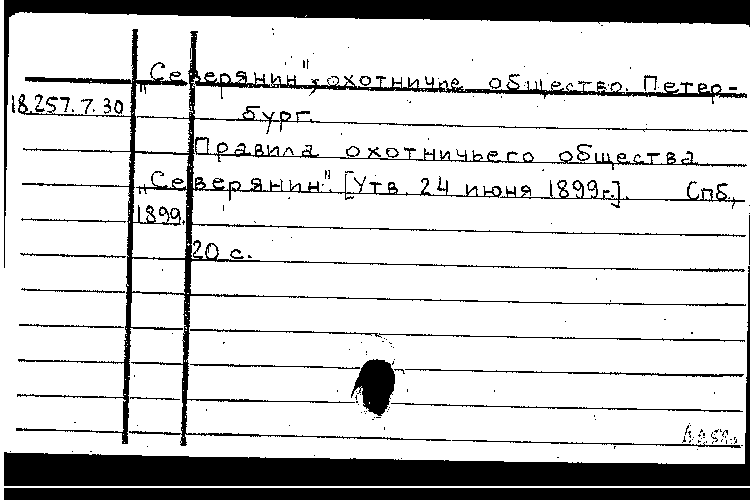 „Северянин", охотничье общество. Петер-
18.257.7.30
бург.
Правила охотничьего общества
„Северянин". [Утв. 24 июня 1899г.]. Спб,
1899.
20 с.